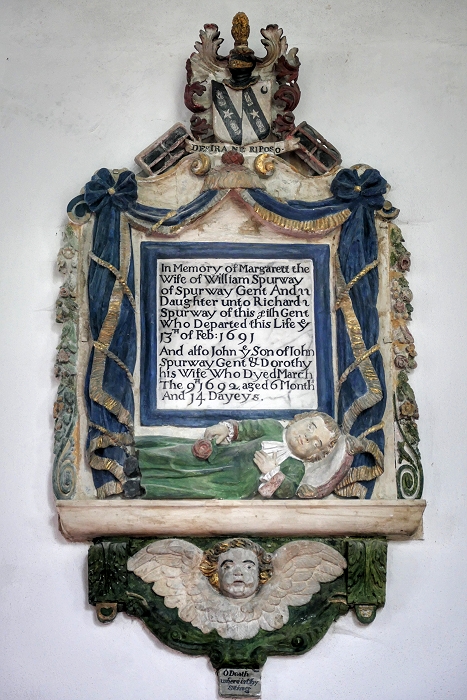 DESIRA NE RIPOSO
In Memory of Margarett the
Wife of William Spurway
of Spurway Gent And
Daughter unto Richard
Spurway of this Gent
Who Departed this Life ye
13th of Feb: 1691
And also John ye Son of John
Spurway Gent & Dorothy
his Wife Who Dyed March
The 9th 1692 aged 6 Month
And 14 Dayeys.
O Death
where is thy